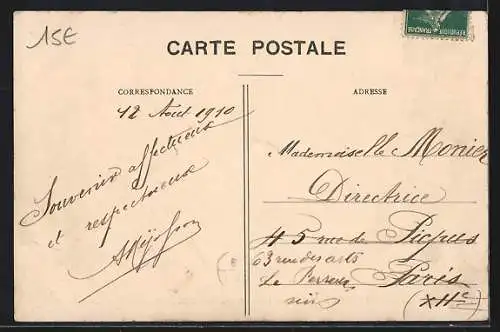 15E
CARTE POSTALE
CORRESPONDANCE
ADRESSE
12 Aout 1910
Souvenir affectueux
et respectueux
Mademoiselle Monier
Directrice
45 rue de Picpus
63 rue des arts
Le Perreux Paris
(XIIe)